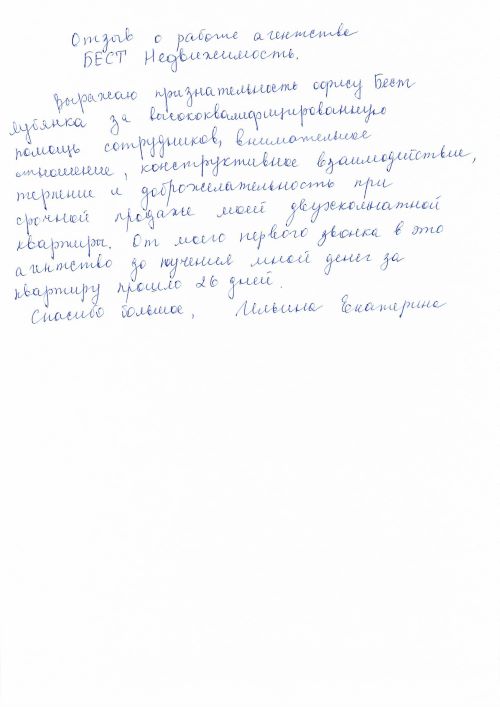 Отзыв о работе агентства
БЕСТ Недвижимость.
Выражаю признательность офису Бест
Лубянка за высококвалифицированную
помощь сотрудников, внимательное
отношение, конструктивное взаимодействие,
терпение и доброжелательность при
срочной продаже моей двухкомнатной
квартиры. От моего первого звонка в это
агентство до получения мной денег за
квартиру прошло 26 дней.
Спасибо большое, Ильина Екатерина